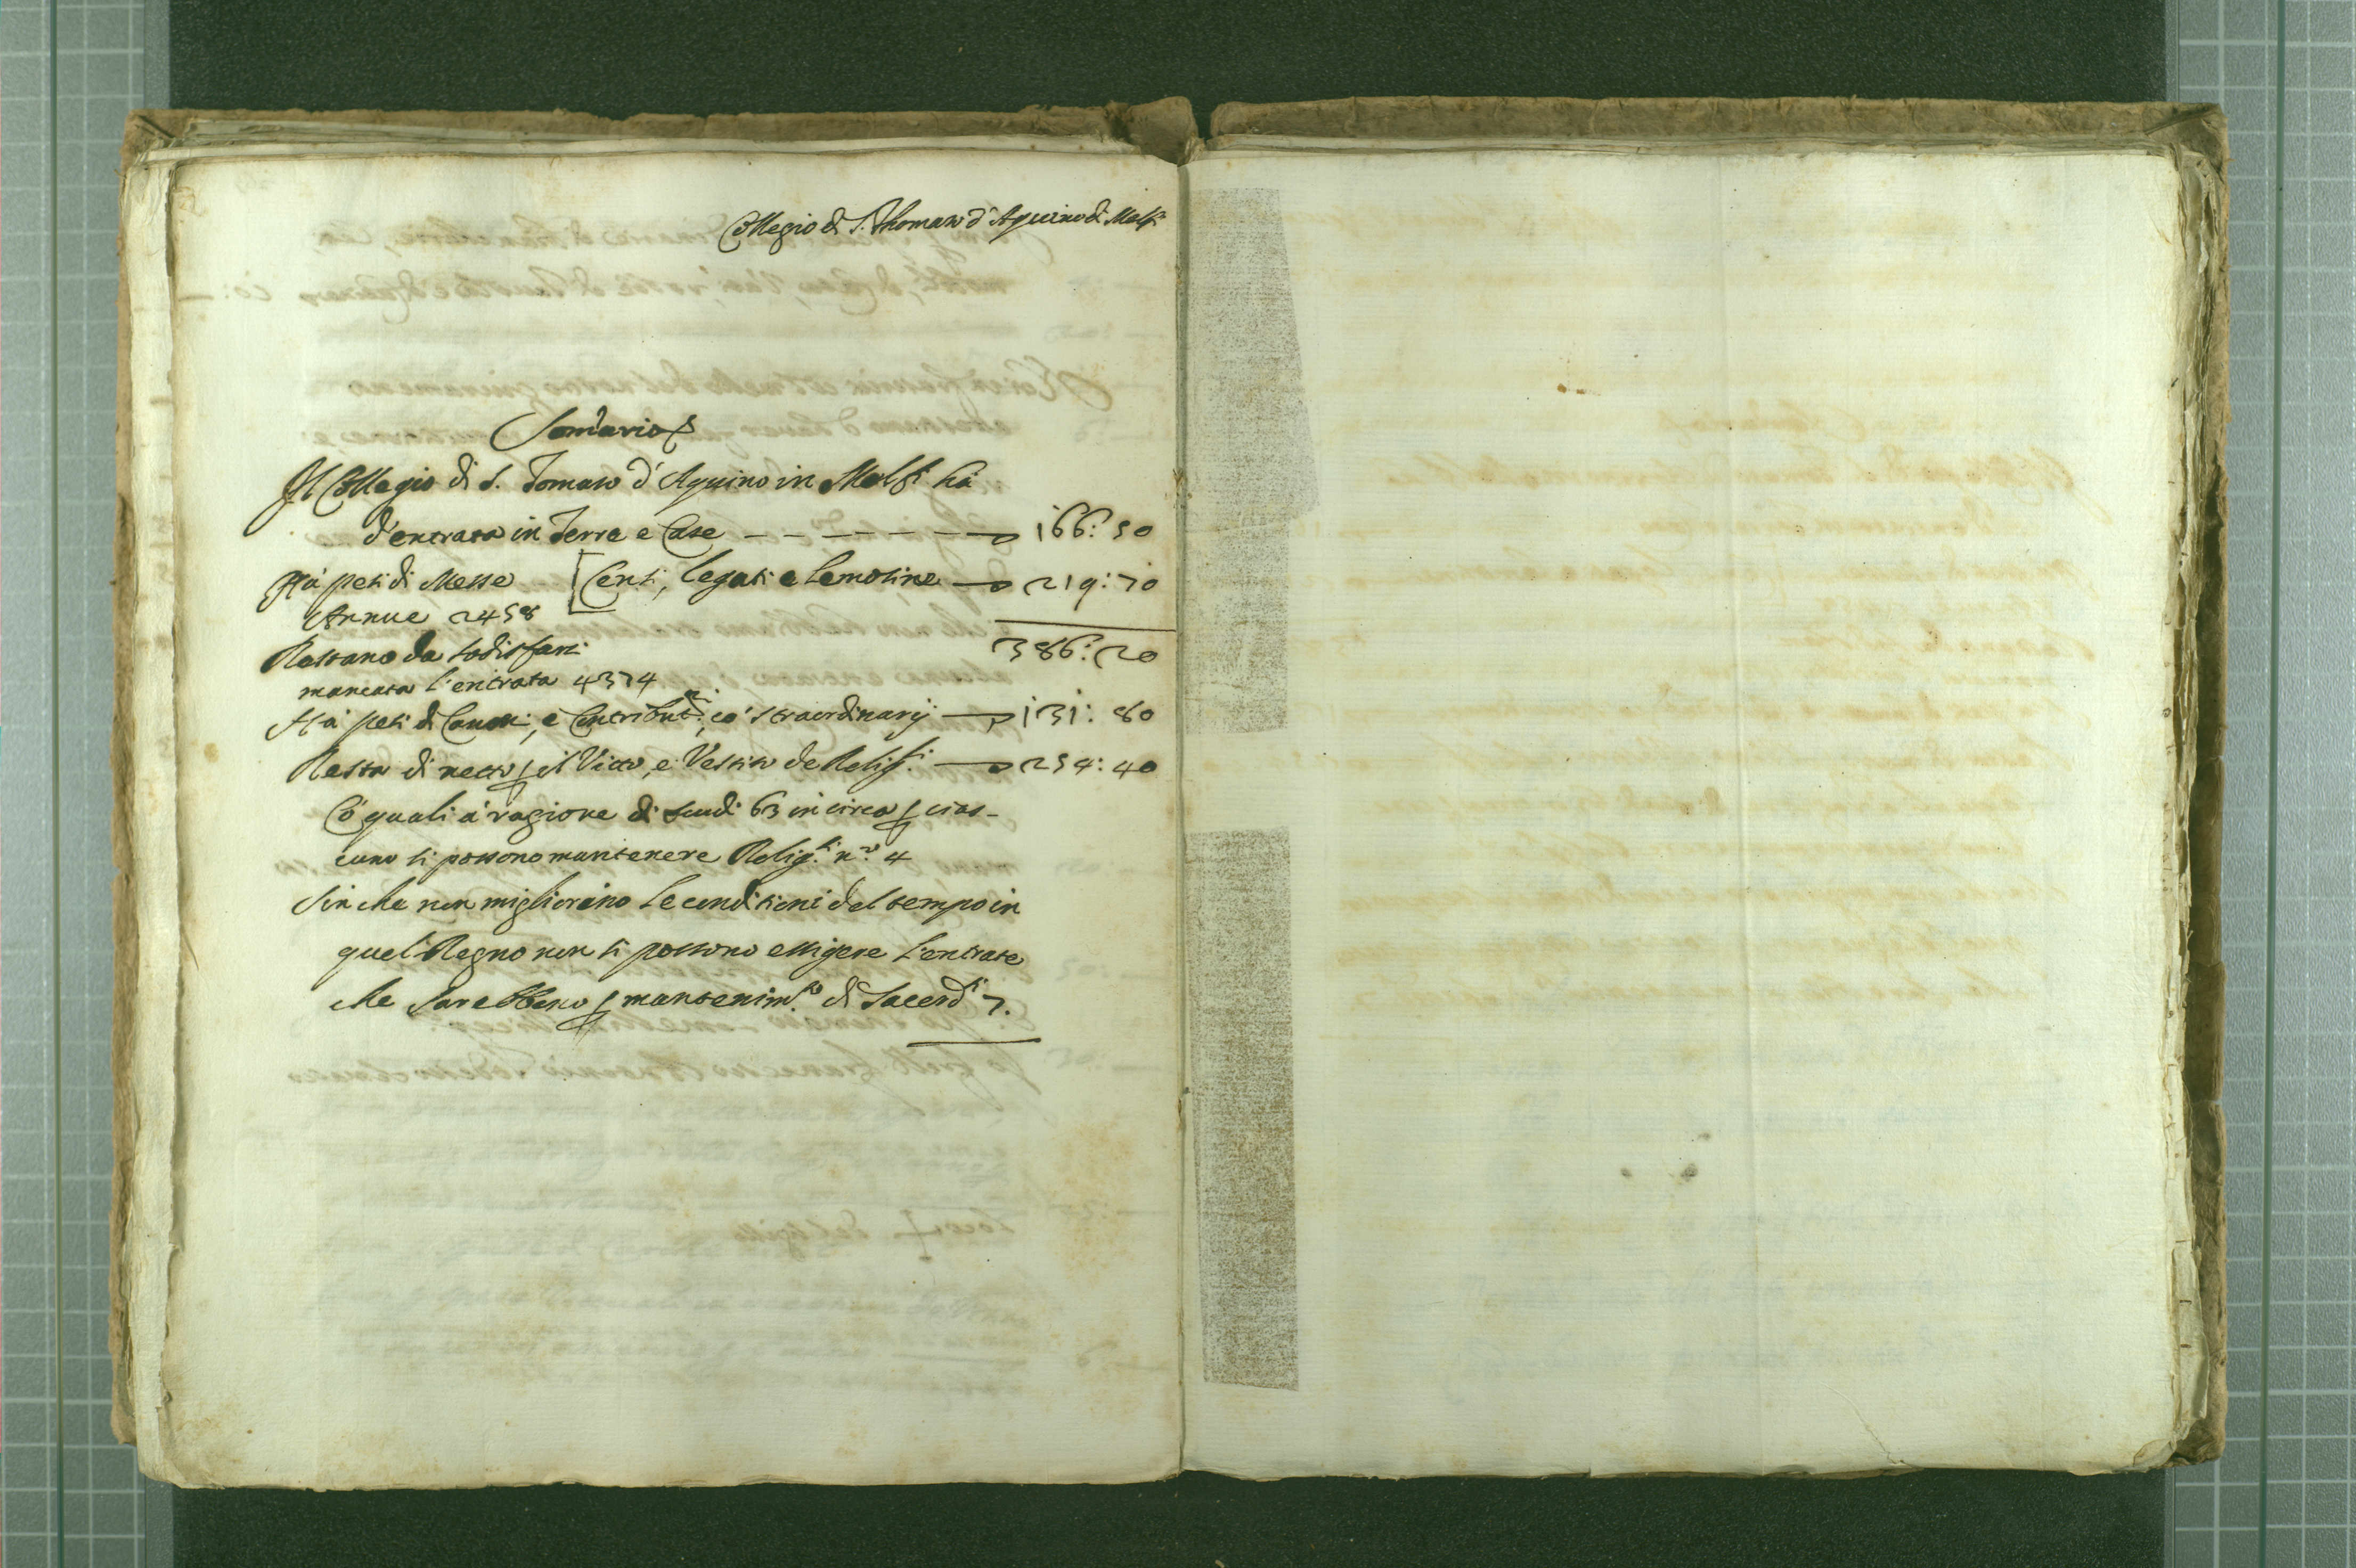 Collegio di S. Thomaso d'Aquino di Melfi
Som̃ario
Il Collegio di S. Tomaso d'Aquino in Melfi hà
d'entrata in Terre e Case — 166:50
Hà pesi di Messe [Censi, legati e lemosine — 219:70
Annue 2458
386:20
Restano da sodisfarsi
mancata l'entrata 4374
Hà pesi di Canoni, e Contribut.ni, co' straordinarij — 131:80
Resta di netto p il Vitto, e Vestito de Relig.si — 254:40
Cò quali à ragione di scudi 63 in circa p cias-
cuno si possono mantenere Relig.si n.º 4
Sin che non migliorano le conditioni del tempo in
quel Regno non si possono essigere l'entrate
che sarebbeno p mantenim.to di Sacerd.ti 7.